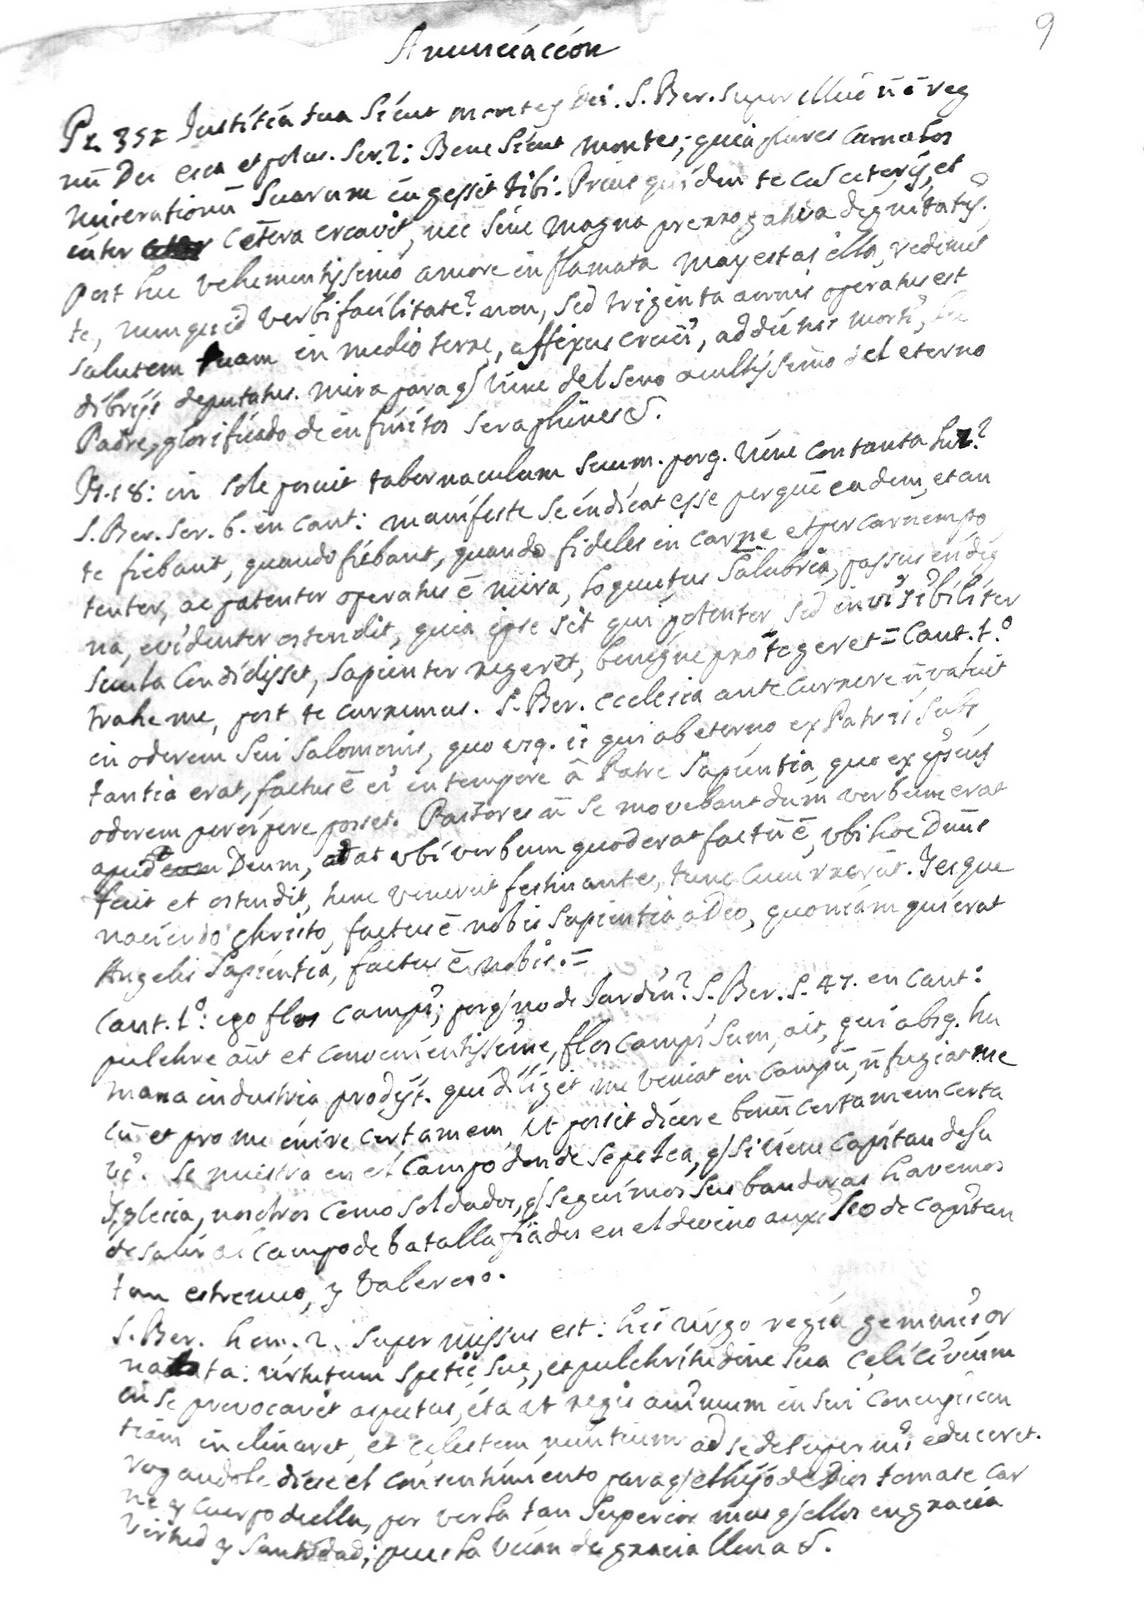 9
Anunciación
Ps. 35: Iustitia tua sicut montes Dei. S. Ber. super illud nō ē reg
nū Dei esca et potus. Ser. 2: Bene sicut montes; quia plures cumulos
miserationū suarum cōgessit tibi. Prius quidem te cū ceteris, et
inter cētera creavit, nec sine magna prerrogativa dignitatis.
post hec vehementissimo amore inflamata mayestas illa, redemit
te, nunquid verbi facilitate? non, sed triginta annis operatus est
salutem tuam in medio terre, affixus cruci, addictus morti, lu
dibrijs deputatus. mira para q̄ viene del seno ocultissimo del eterno
Padre, glorificado de infinitos seraphines &.
Ps. 18: in sole posuit tabernaculum suum. porq. viene con tanta luz?
S. Ber. Ser. 6. in cant: manifeste se indicat esse per quē eadem, et an
te fiebant, quando fiebant, quando fideles in carne et per carnem po
tenter, ac patenter operatus ē mira, loquutus salubria, passus indig
na, evidenter ostendit, quia ipse sit qui potenter, sed invisibiliter
secula condidisset, sapienter regeret, benigne protegeret = Cant. 1.º
trahe me, post te curremus. S. Ber. ecclesia ante currere nō valuit
in odorem sui Salomonis, quo usq. is qui ab eterno ex Patris subs
tantia erat, factus ē ei in tempore â Patre sapientia, quo ex ipsius
odorem percipere posset. Pastores nō se movebant dum verbum erat
apud Deum, at ubi verbum quod erat factū ē, ubi hoc Dnūs
fecit et ostendit, tunc venerunt festinantes, tunc cucurrerūt. Ies que
naciendo Christo, factus ē nobis sapientia a Deo, quoniam qui erat
Angelis sapientia, factus ē nobis. =
Cant. 1.º: ego flos campi; porq̄ no de Iardin? S. Ber. S. 47. en Cant:
pulchre aūt et convenientissime, flos campi sum, ait, qui absq. hu
mana industria prodijt. qui diliget me veniat in campū, nō fugiat me
cū et pro me inire certamen, ut possit dicere bonū certamen certa
vi. Se muestra en el campo donde se pelea, q̄ si viene capitan de su
Iglesia, nosotros como soldados, q̄ seguimos sus banderas havemos
de salir al campo de batalla fiados en el divino auxilio de capitan
tan estremo, y valeroso.
S. Ber. hom. 2. super missus est: his virgo regia gemmis or
nata: virtutum spetie, sue, et pulchritudine sua cęli civium
in se provocavit aspectus, ita ut regis animum in sui concupiscen
tiam inclinaret, et celestem nuntium ad se de supernis educeret.
rogandole diese el consentimiento para q̄ el hijo de Dios tomase car
ne y cuerpo de ella, por verla tan superior mas q̄ ellos en gracia
virtud y santidad; pues la veian de gracia llena &.